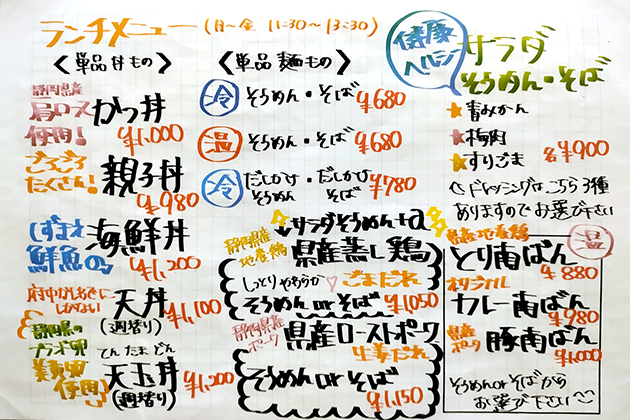 ランチメニュー (月〜金 11:30〜13:30)
〈単品丼もの〉
静岡県産
肩ロース
使用!
かつ丼
¥1,000
ごろごろ
たくさん!
親子丼
¥980
しずまえ
鮮魚の
海鮮丼
¥1,200
府中かしあげに
天丼
(週替り)
¥1,100
静岡県の
ブランド卵
美黄卵
使用
てんたまどん
天玉丼
(週替り)
¥1,200
〈単品麺もの〉
冷 そうめん・そば ¥680
温 そうめん・そば ¥680
冷 だしかけそうめん・だしかけそば ¥780
サラダそうめん+α
静岡県産
地養鶏
県産蒸し鶏
しっとりやわらか♡
ごまだれ
そうめん or そば ¥1,050
静岡県産
ポーク
県産ローストポーク
生姜だれ
そうめん or そば
¥1,150
健康
ヘルシー
サラダ
そうめん・そば
★青みかん
★梅肉
★すりごま
各¥900
(ドレッシングはこちら3種
ありますのでお選び下さい
温
県産地養鶏
とり南ばん
¥880
オリジナル
カレー南ばん
¥980
県産
ポーク
豚南ばん
¥1,000
そうめん or そばから
お選び下さい